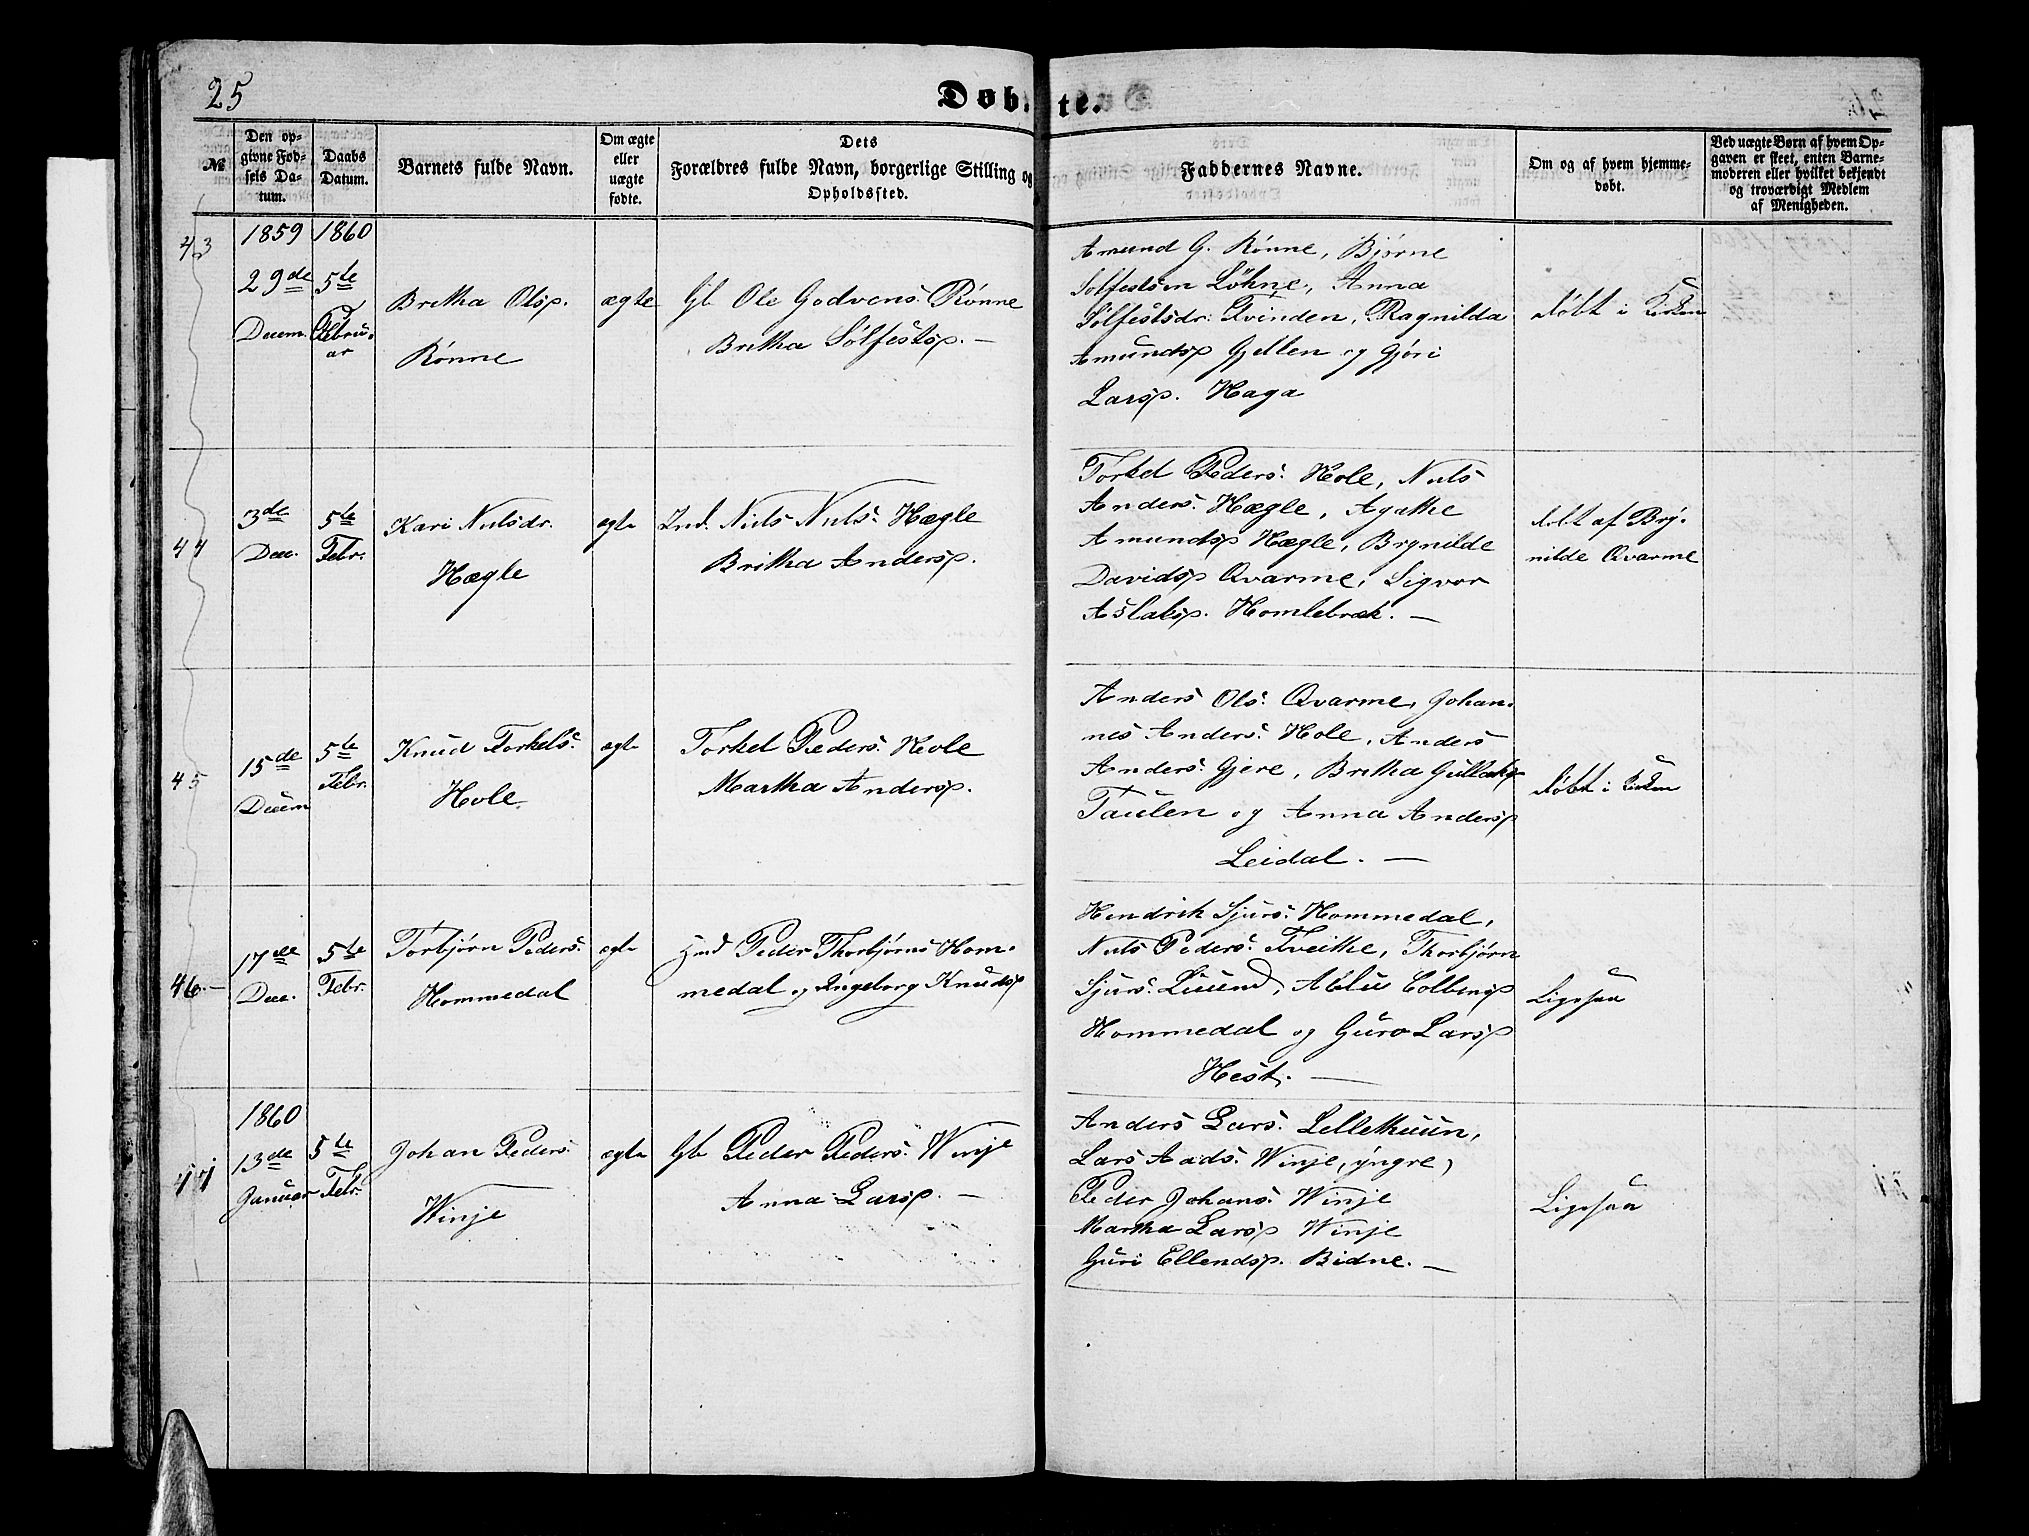 25
Døbte.
№
Den op-
givne Fød-
sels Da-
tum.
Daabs
Datum.
Barnets fulde Navn.
Om ægte
eller
uægte
fødte.
Dets
Forældres fulde Navn, borgerlige Stilling og
Opholdssted.
Faddernes Navne.
Om og af hvem hjemme-
døbt.
Ved uægte Børn af hvem Op-
gaven er skeet, enten Barne-
moderen eller hvilket bekjendt
og troværdigt Medlem
af Menigheden.
43
1859
29de
Decem.
1860
5te
Febru-
ar
Britha Olsd.
Rønne
ægte
Gb Ole Godvens. Rønne
Britha Sølfestsd. —
Amund G. Rønne, Bjørne
Solfestsen Løhne, Anna
Sølfestsdr. Tvinden, Ragnilda
Amundsd Gjellen og Gjøri
Larsd. Haga
døbt i Kirken
44
3de
Dec.
5te
Febr.
Kari Nielsdr.
Hægle
ægte
Ind. Niels Niels. Hægle
Britha Andersd.
Torkel Peders. Hole, Niels
Anders. Hægle, Agathe
Amundsd Hægle, Brynilde
Davidsd Qvarme, Sigvor
Aslaksd. Homlebræk. —
døbt af Bry-
nilde Qvarme
45
15de
Decem
5te
Febr.
Knud Torkels.
Hole
ægte
Torkel Peders. Hole
Martha Andersd.
Anders Ols. Qvarme, Johan-
nes Anders. Hole, Anders
Anders. Gjere, Britha Gullaksd
Taulen og Anna Andersd
Leidal. —
døbt i Kirken
46.
17de
Dec.
5te
Febr.
Torbjørn Peders.
Hommedal
ægte
Hmd Peder Thorbjørns Hom-
medal og Ingeborg Knudsd
Hendrik Sjurs. Hommedal,
Niels Peders. Tveithe, Thorbjørn
Sjurs.
Hommedal og Guro Larsd
Hest. —
Ligesaa
47
1860
13de
Januar
5te
Febr.
Johan Peders.
Winje
ægte
Gb Peder Peders. Winje
Anna Larsd. —
Anders Lars. Lellethuun,
Lars Aads. Winje, yngre,
Peder Johans. Winje
Martha Larsd Winje
Guri Ellendsd. Bidne. —
Ligesaa